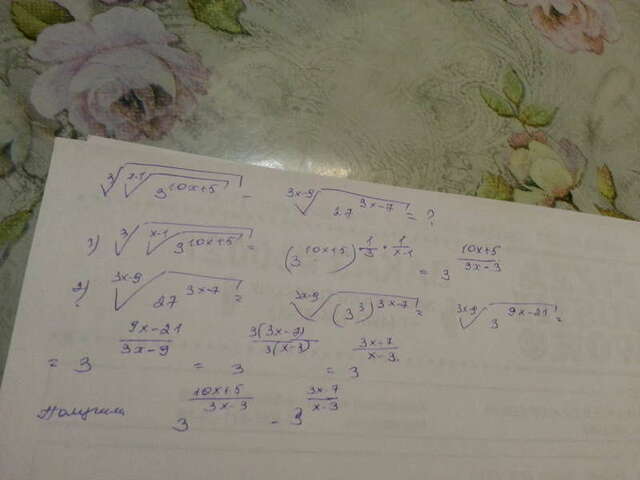 ∛(ˣ⁻¹√(3^(10x+5))) − ³ˣ⁻⁹√(27^(3x-7)) = ?
1) ∛(ˣ⁻¹√(3^(10x+5))) = (3^(10x+5))^(1/3 · 1/(x-1)) = 3^((10x+5)/(3x-3))
2) ³ˣ⁻⁹√(27^(3x-7)) = ³ˣ⁻⁹√((3³)^(3x-7)) = ³ˣ⁻⁹√(3^(9x-21)) =
= 3^((9x-21)/(3x-9)) = 3^(3(3x-7)/3(x-3)) = 3^((3x-7)/(x-3))
Получим 3^((10x+5)/(3x-3)) - 3^((3x-7)/(x-3))